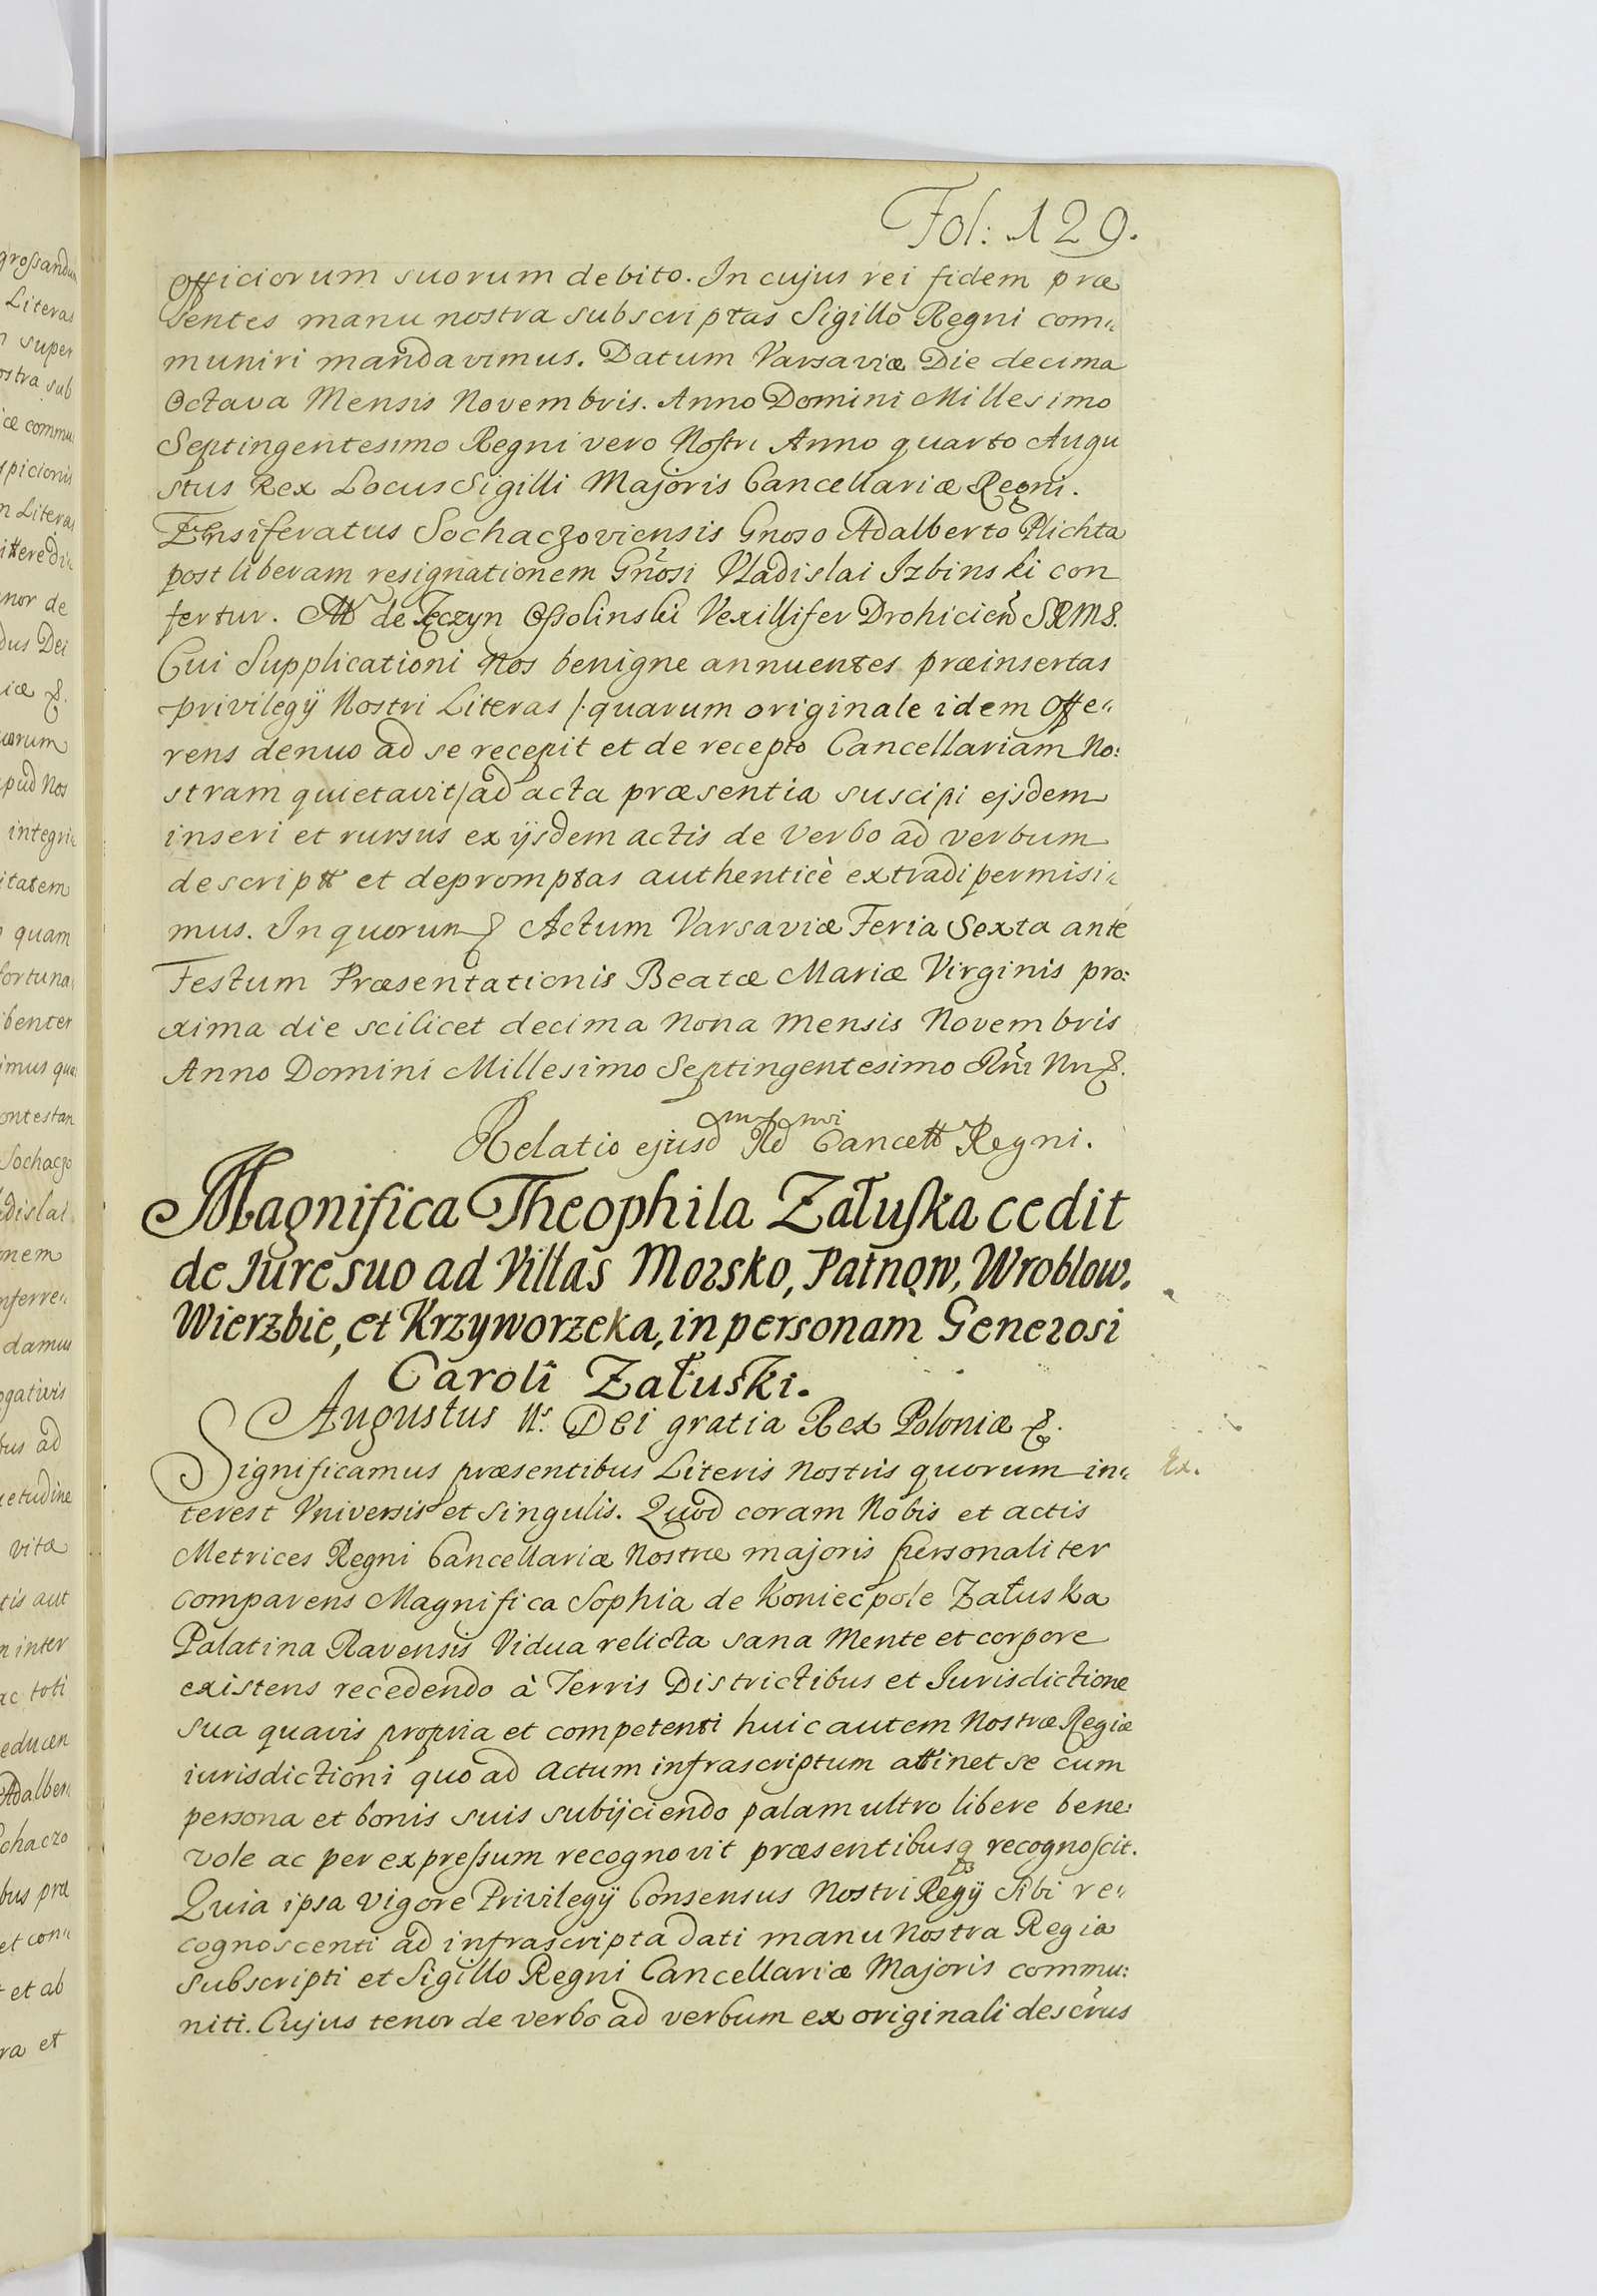 Fol: 129.
officiorum suorum debito. In cujus rei fidem præ
sentes manu nostra subscriptas Sigillo Regni com„
muniri mandavimus. Datum Varsaviæ Die decima
Octava Mensis Novembris. Anno Domini Millesimo
Septingentesimo Regni vero Nostri Anno quarto Augu
stus Rex Locus Sigilli Majoris Cancellariæ Regni.
Ensiferatus Sochaczoviensis Gnoso Adalberto Plichta
post liberam resignationem Gnosi Vladislai Izbinski con
fertur. de Tęczyn Ossolinski Vexillifer Drohicien SRMS.
Cui Supplicationi Nos benigne annuentes præinsertas
privilegÿ Nostri Literas /: quarum originale idem Offe„
rens denuo ad se recepit et de recepto Cancellariam No:
stram quietavit/ ad acta præsentia suscipi ejsdem
inseri et rursus ex ijsdem actis de verbo ad verbum
descript et depromptas authenticè extradi permisi„
mus. In quorum & Actum Varsaviæ Feria Sexta ante
Festum Præsentationis Beatæ Mariæ Virginis pro:
xima die scilicet decima Nona Mensis Novembris
Anno Domini Millesimo Septingentesimo Rni Nri &.
Relatio ejusd Rd Cancell Regni.
Magnifica Theophila Załuska cedit
de Iure suo ad Villas Morsko, Patnow, Wroblow,
Wierzbie, et Krzyworzeka, in personam Generosi
Caroli Załuski.
Augustus IIs. Dei gratia Rex Poloniæ &.
Significamus præsentibus Literis Nostris quorum in„
Ex.
terest Vniversis et singulis. Quod coram Nobis et actis
Metrices Regni Cancellariæ Nostræ majoris personaliter
comparens Magnifica Sophia de Koniecpole Załuska
Palatina Ravensis Vidua relicta sana Mente et corpore
existens recedendo à Terris Districtibus et Jurisdictione
sua quavis propria et competenti huic autem Nostræ Regiæ
iurisdictioni quo ad actum infrascriptum attinet se cum
persona et bonis suis subijciendo palam ultro libere bene:
vole ac per expressum recognovit præsentibusq recognoscit.
Quia ipsa vigore Privilegÿ Consensus Nostri Regÿ Sibi re„
cognoscenti ad infrascripta dati manu Nostra Regia
subscripti et Sigillo Regni Cancellariæ Majoris commu:
niti. Cujus tenor de verbo ad verbum ex originali descrus